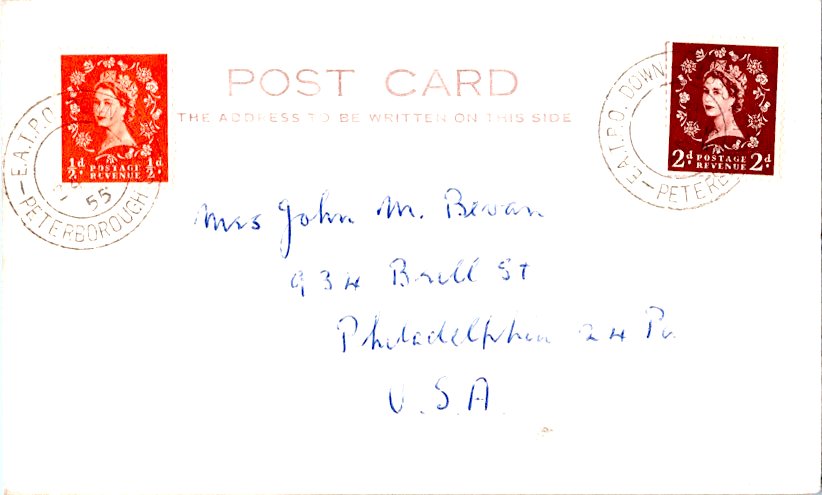 POST CARD
THE ADDRESS TO BE WRITTEN ON THIS SIDE
E.A.T.P.O.
PETERBOROUGH
55
½d POSTAGE REVENUE ½d
E.A.T.P.O. DOWN
PETERB
2d POSTAGE REVENUE 2d
Mrs John M. Bevan
934 Brill St
Philadelphia 24 Pa
U.S.A.